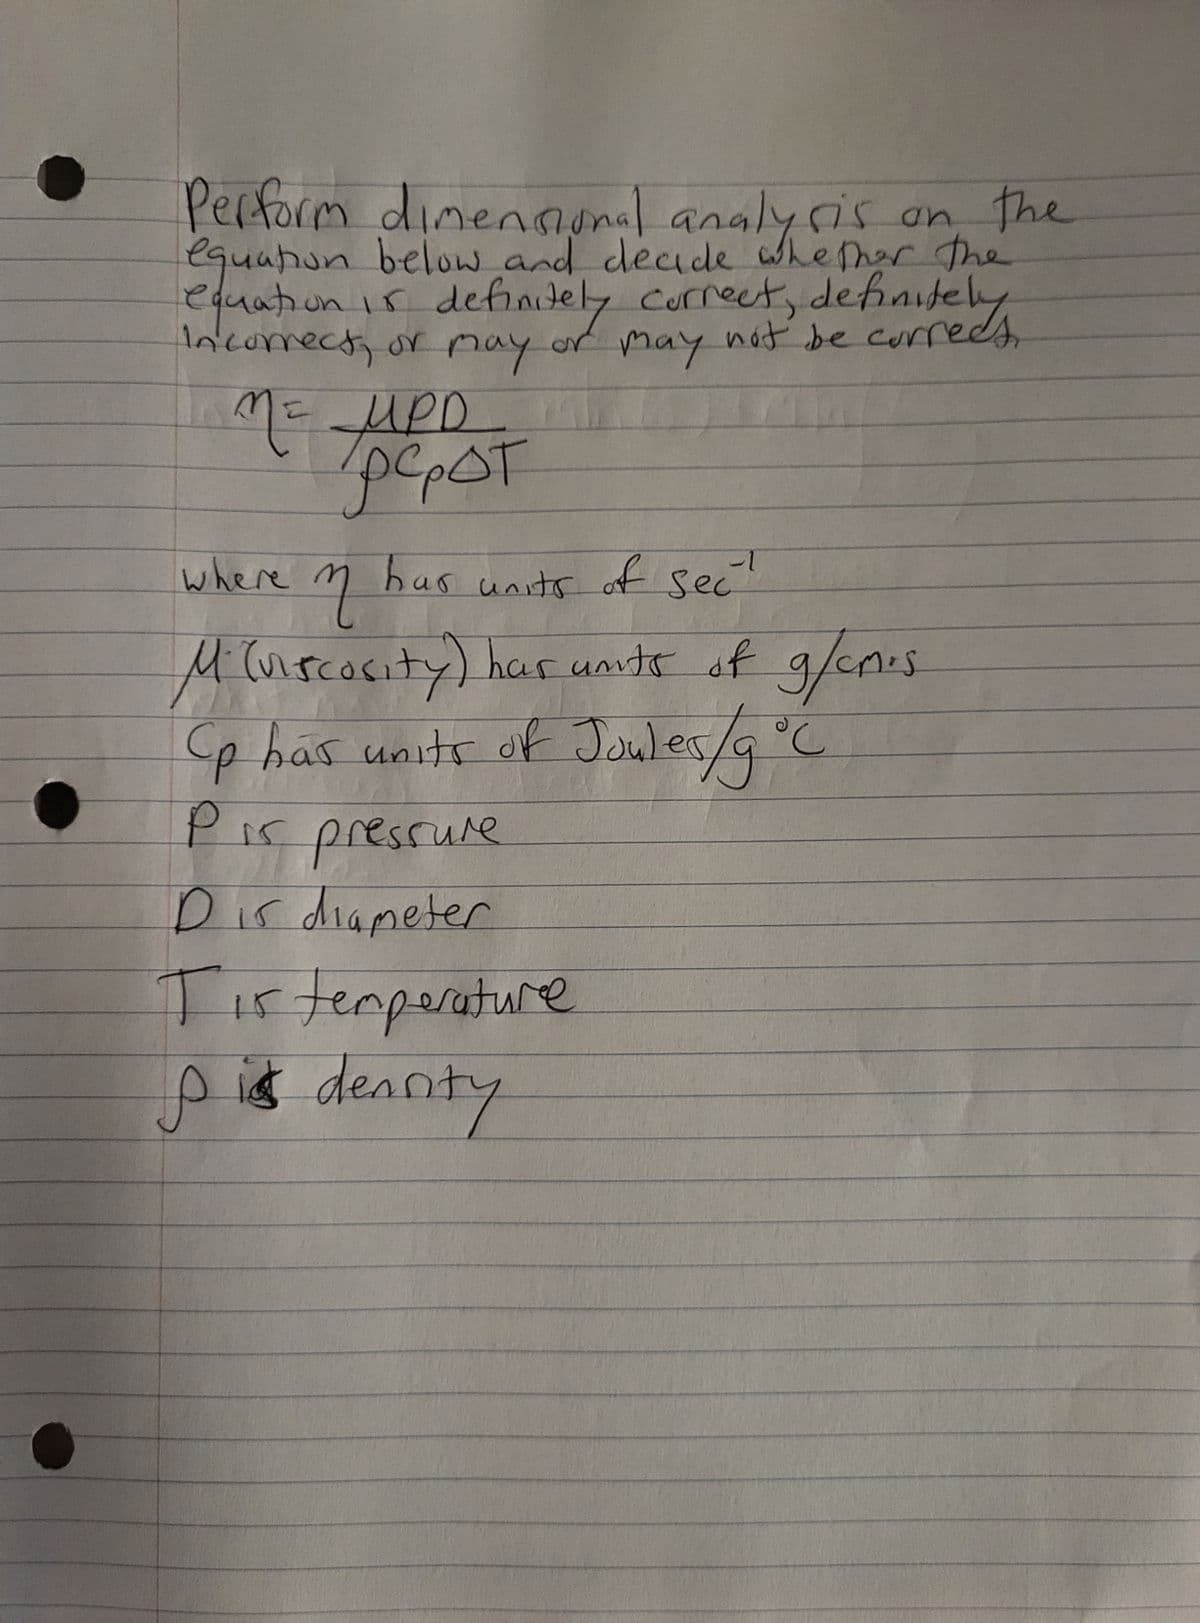 Perform dimensional analysis on the
equation below and decide whether the
equation is definitely correct, definitely
incorrect, or may or may not be correct.
η = μPD
ρCpΔT
where η has units of sec⁻¹
μ (viscosity) has units of g/cm·s
Cp has units of Joules/g °C
P is pressure
D is diameter
T is temperature
ρ is density